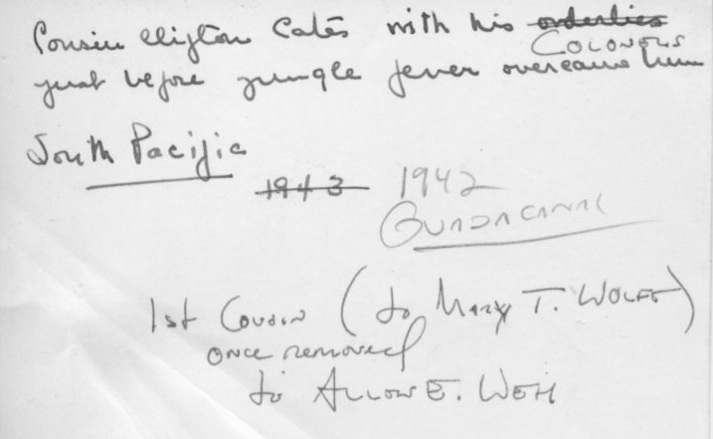 Cousin Clifton Cates with his orderlies
COLONELS
just before jungle fever overcame him
South Pacific
1943 1942
GUADACANAL
1st Cousin (to Mary T. Wolfe)
once removed
to Allow E. Weh